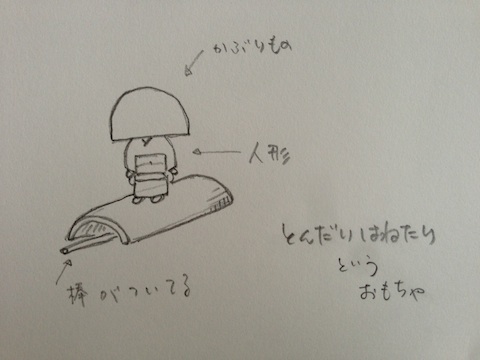 かぶりもの
人形
棒がついてる
とんだりはねたり
という
おもちゃ